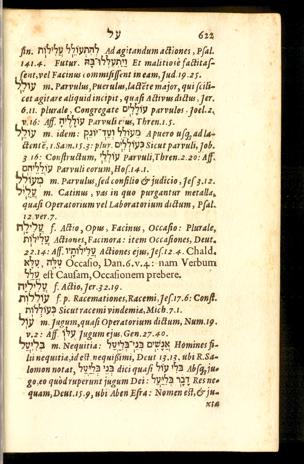 על 622
fin. לְהִתְעוֹלֵל עֲלִילוֹת Ad agitandum actiones, Psal.
141.4. Futur. וַיִּתְעַלְּלוּ־בָהּ Et malitiose factitas-
sent, vel Facinus commisissent in eam, Jud. 19.25.
עוֹלֵל m. Parvulus, Puerulus, lactēre major, qui scili-
cet agitare aliquid incipit, quasi Activus dictus, Jer.
6.11. plurale. Congregate עוֹלָלִים parvulos. Joel.2,
v.16: Aff. עוֹלָלֶיהָ Parvuli ejus, Thren.1.5.
עוֹלֵל m. idem: מֵעוֹלֵל וְעַד־יוֹנֵק A puero usq, ad la-
ctentē, 1. Sam.15.3: plur. כְּעוֹלְלִים Sicut parvuli, Job.
3 16: Constructum, עוֹלְלֵי Parvuli, Thren. 2.20: Aff.
עוֹלְלֵיהֶם Parvuli eorum, Hos.14.1.
מְעוֹלֵל m. Parvulus, sed consilio & judicio, Jes. 3.12.
עֲלִיל m. Catinus, vas in quo purgantur metalla,
quasi Operatorium vel Laboratorium dictum, Psal.
12. ver.7.
עֲלִילָה f. Actio, Opus, Facinus, Occasio: Plurale,
עֲלִילוֹת Actiones, Facinora: item Occasiones, Deut.
22.14: Aff. עֲלִילוֹתָיו Actiones ejus, Jes.12.4. Chald.
עִלָּה, עִלְּתָא Occasio, Dan. 6. v. 4: nam Verbum
עִלֵּל est Causam, Occasionem prebere.
עֲלִילִיָּה f. Actio, Jer. 32.19.
עוֹלֵלוֹת f. p. Racemationes, Racemi, Jes.17.6: Const.
כְּעוֹלְלוֹת Sicut racemi vindemia, Mich. 7.1.
עוֹל m. Jugum, quasi Operatorium dictum, Num. 19.
v.2: Aff. עֻלּוֹ Jugum ejus. Gen. 27.40.
בְּלִיַּעַל m. Nequitia: אֲנָשִׁים בְּנֵי־בְלִיַּעַל Homines fi-
lii nequitia, id est nequissimi, Deut 13.13. ubi R. Sa-
lomon notat, בְּנֵי בְלִיַּעַל dici quasi בְּלִי עוֹל Absq, ju-
go. eo quòd ruperunt jugum Dei: דְבַר בְּלִיַּעַל Res ne
quam, Deut.15.9, ubi Aben Esra: Nomen est, & ju-
xta